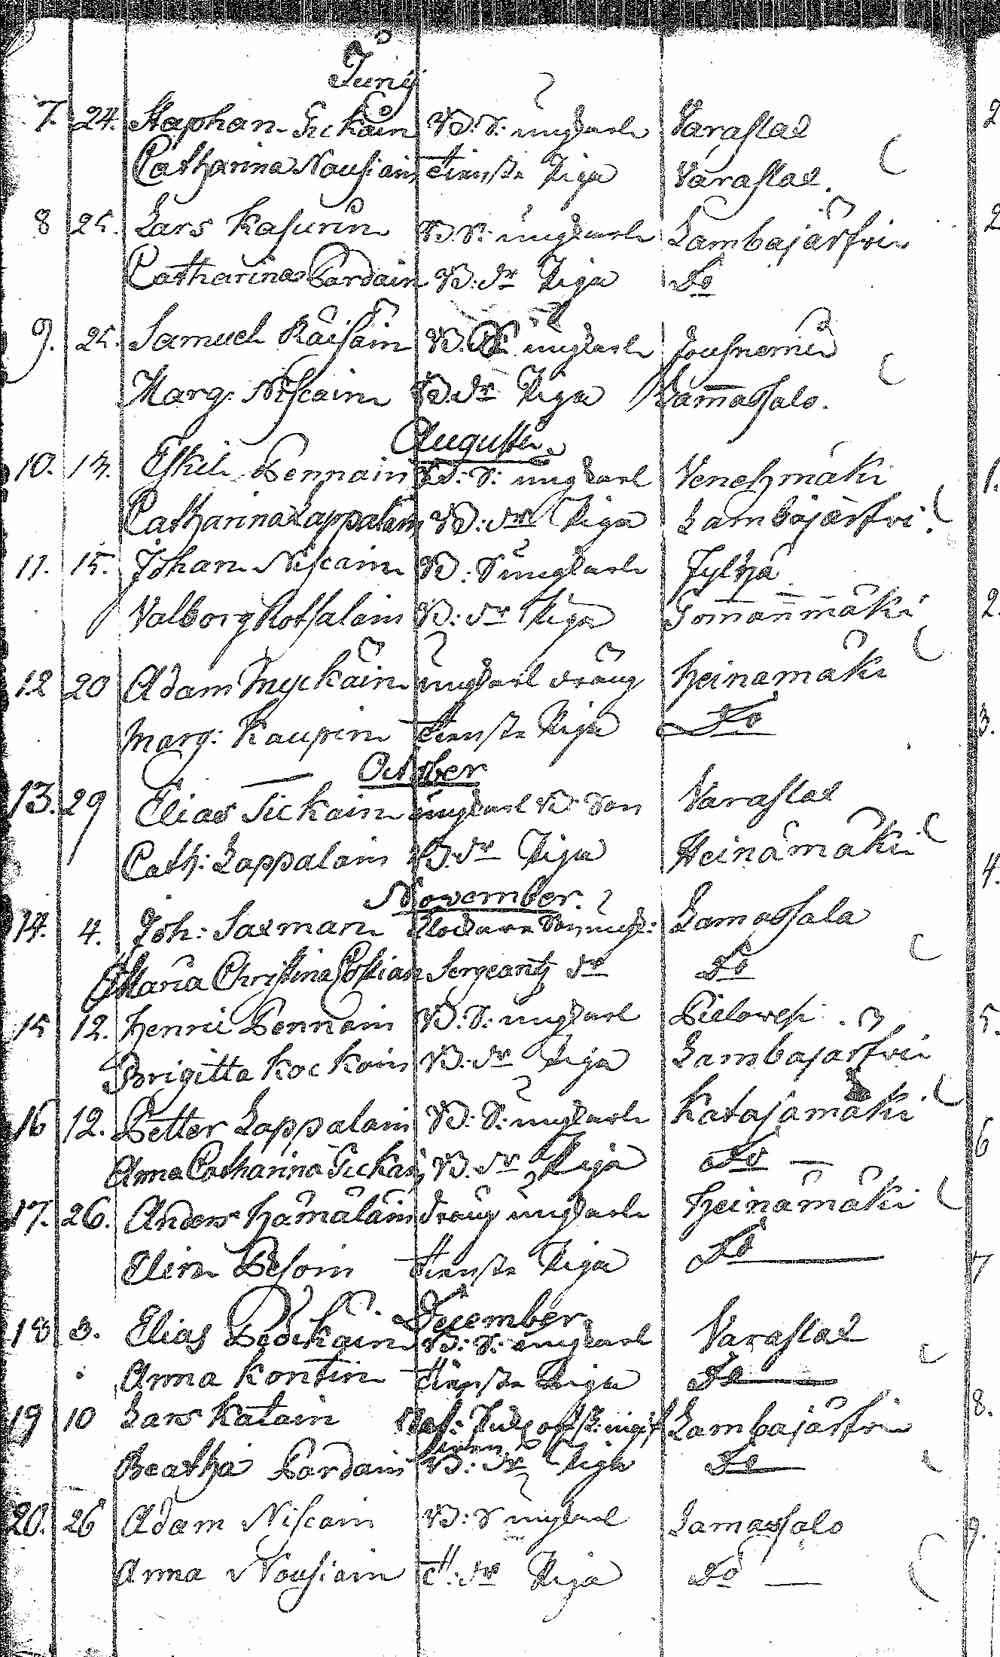 Junij
7. 24. Staphan Sickain B: S: ungkarl Varaslax
Catharina Nousiain tienste Piga Varaslax.
8 25. Lars Kasurin B: S: ungkarl Lambajärfvi
Catharina Pardain B: dr Piga Do
9. 25. Samuel Räisäin B. S: ungkarl Jousnemi
Marg: Niscain B. dr Piga Lamassalo.
Augusti
10. 13. Eskil Pennain B: S: ungkarl Venehmäki
Catharina Lappalain B: dr Piga Lambajärfvi.
11. 15. Johan Niscain B: S ungkarl Jylhä
Valborg Rotsalain B: dr Piga
12 20 Adam Myckäin ungkarl dräng Heinämäki
Marg: Kaupin tienste Piga Do
October
13. 29 Elias Sickain ungkarl B: Son Varaslax
Cath: Lappalain B: dr Piga Heinämäki
November.
14. 4. Joh: Saxman Klockare Son ungk: Lamassala
Maria Christina Costian Sergeantz dr Do
15 12. Henric Pennain B: S: ungkarl Pielovesi
Brigitta Kockoin B: dr Piga Lambajärfvi
16 12. Petter Lappalain B: S: ungkarl Katajamäki
Anna Catharina Sickain B: dr Piga Do
17. 26. Anders Hämäläin dräng ungkarl Heinämäki
Elin Pesoin tienste Piga Do
December
18 3. Elias B: S: ungkarl Varaslax
Anna Kontin tienste Piga Do
19 10 Lars Katain Lambajärfvi
Beatha Pardain B: dr Piga Do
20. 26 Adam Niscain B: S ungkarl Lamassalo
Anna Nousiain t: dr Piga Do